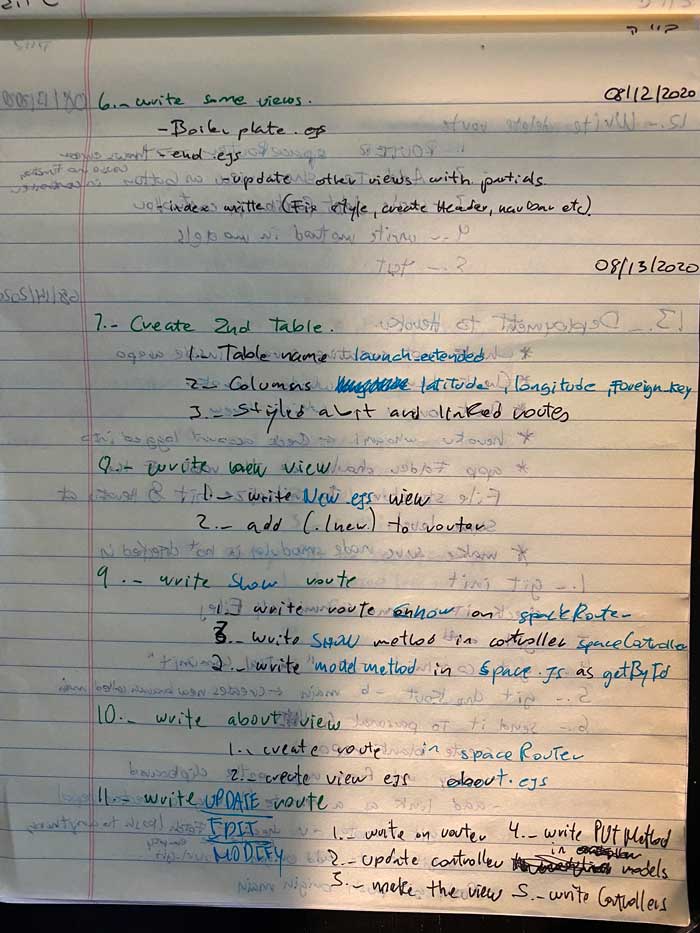 08/12/2020
6.- write some views.
- Boiler plate.ejs
- end.ejs
- update other views with partials.
- index written (Fix style, create Header, navbar etc).
08/13/2020
7.- Create 2nd table.
1.- Table name launch_extended
2.- Columns latitude, longitude, foreign_key
3.- Styled a bit and linked routes
8.- write new view
1.- write New.ejs view
2.- add (./new) to router
9.- write show route
1. write route on spaceRouter
3.- write SHOW method in controller spaceController
2.- write "model method in space.js as getById
10.- write about view
1.- create route in spaceRouter
2.- create view ejs about.ejs
11.- write UPDATE route
EDIT
MODIFY
1.- write on router
2.- update controller
3.- make the view
4.- write PUT Method
in models
5.- write Controllers